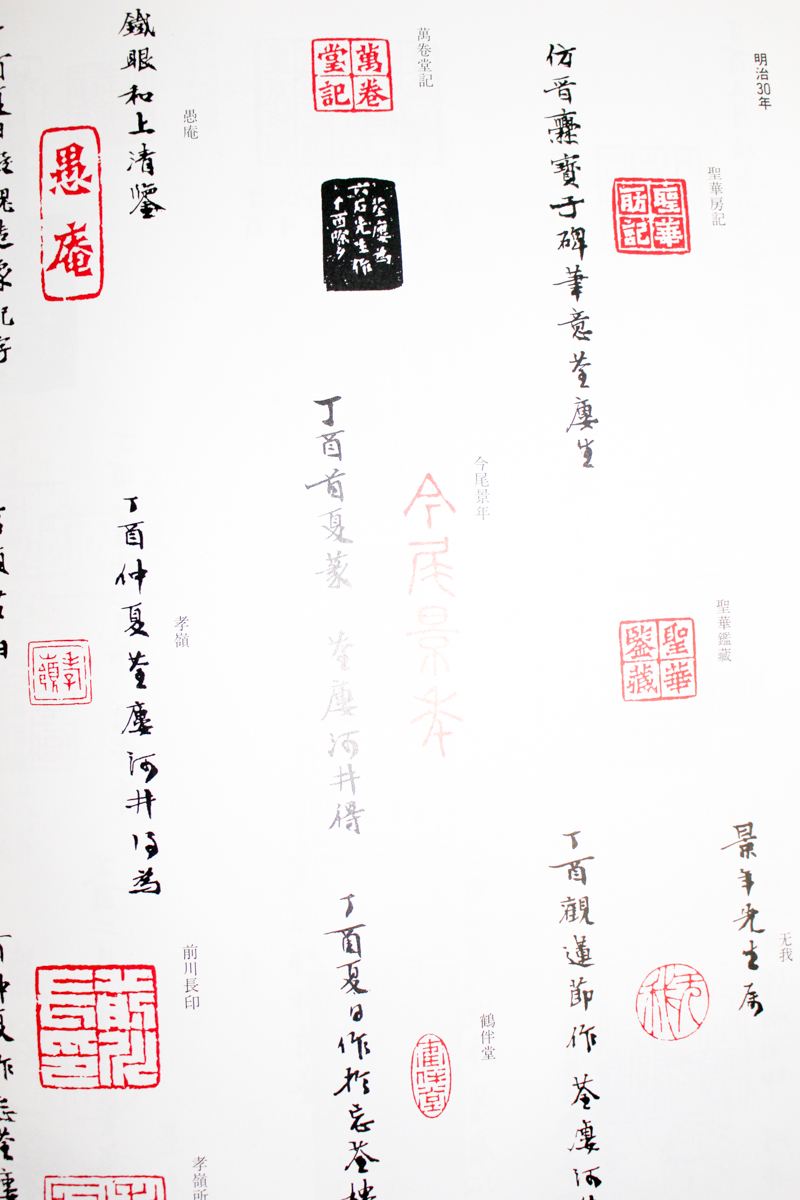 明治30年
聖華房記
聖華房記
仿晋爨寶子碑筆意荃廔生
聖華鑑藏
聖華鑒藏
无我
景年先生属
无我
丁酉觀蓮節作 荃廔河
萬卷堂記
萬卷堂記
荃廔為
六石先生作
丁酉除夕
今尾景年
今尾景年
丁酉首夏篆 荃廔河井得
鶴伴堂
丁酉夏日作於忘荃樓
愚庵
鐵眼和上清鑒
愚庵
孝嶺
丁酉仲夏荃廔河井得為
孝嶺
前川長印
前川長印
孝嶺所